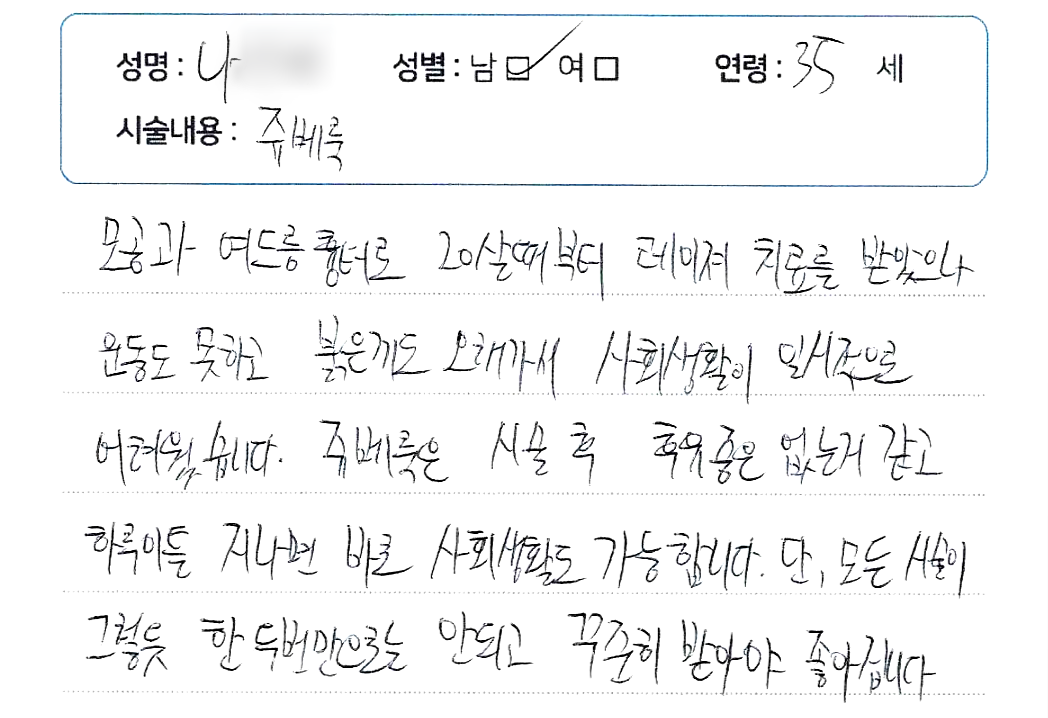 성명 : 나 성별 : 남 ☑ 여 □ 연령 : 35 세
시술내용 : 쥬베룩
모공과 여드름 흉터로 20살때부터 레이져 치료를 받았으나
운동도 못하고 붉은끼도 오래가서 사회생활이 일시적으로
어려웠습니다. 쥬베룩은 시술 후 후유증은 없는거 같고
하루이틀 지나면 바로 사회생활도 가능합니다. 단, 모든 시술이
그렇듯 한 두번만으로는 안되고 꾸준히 받아야 좋아집니다